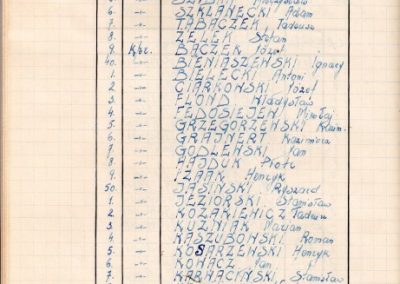 6. -"- SZKLANECKI Adam
7. -"- TABACZEK Tadeusz
8. -"- ZELEK Stefan
9. Kpr. BĄCZEK Józef
40. -"- BIENIASZEWSKI Ignacy
1. -"- BIELECKI Antoni
2. -"- CIARKOWSKI Józef
3. -"- FLOND Władysław
4. -"- FEDOSIEJEN Mikołaj
5. -"- GRZEGORZEWSKI Klem.
6. -"- GRAJNERT Kazimierz
7. -"- GODLEWSKI Jan
8. -"- HAJDUK Piotr
9. -"- IZAAK Henryk
50. -"- JASIŃSKI Ryszard
1. -"- JEZIORSKI Stanisław
2. -"- KOZAKIEWICZ Tadeusz
3. -"- KUŹNIAK Marjan
4. -"- KASZUBOWSKI Roman
5. -"- KOSARZEWSKI Henryk
6. -"- KOWACZ Jan
7. -"- KARNACIŃSKI, Stanisław